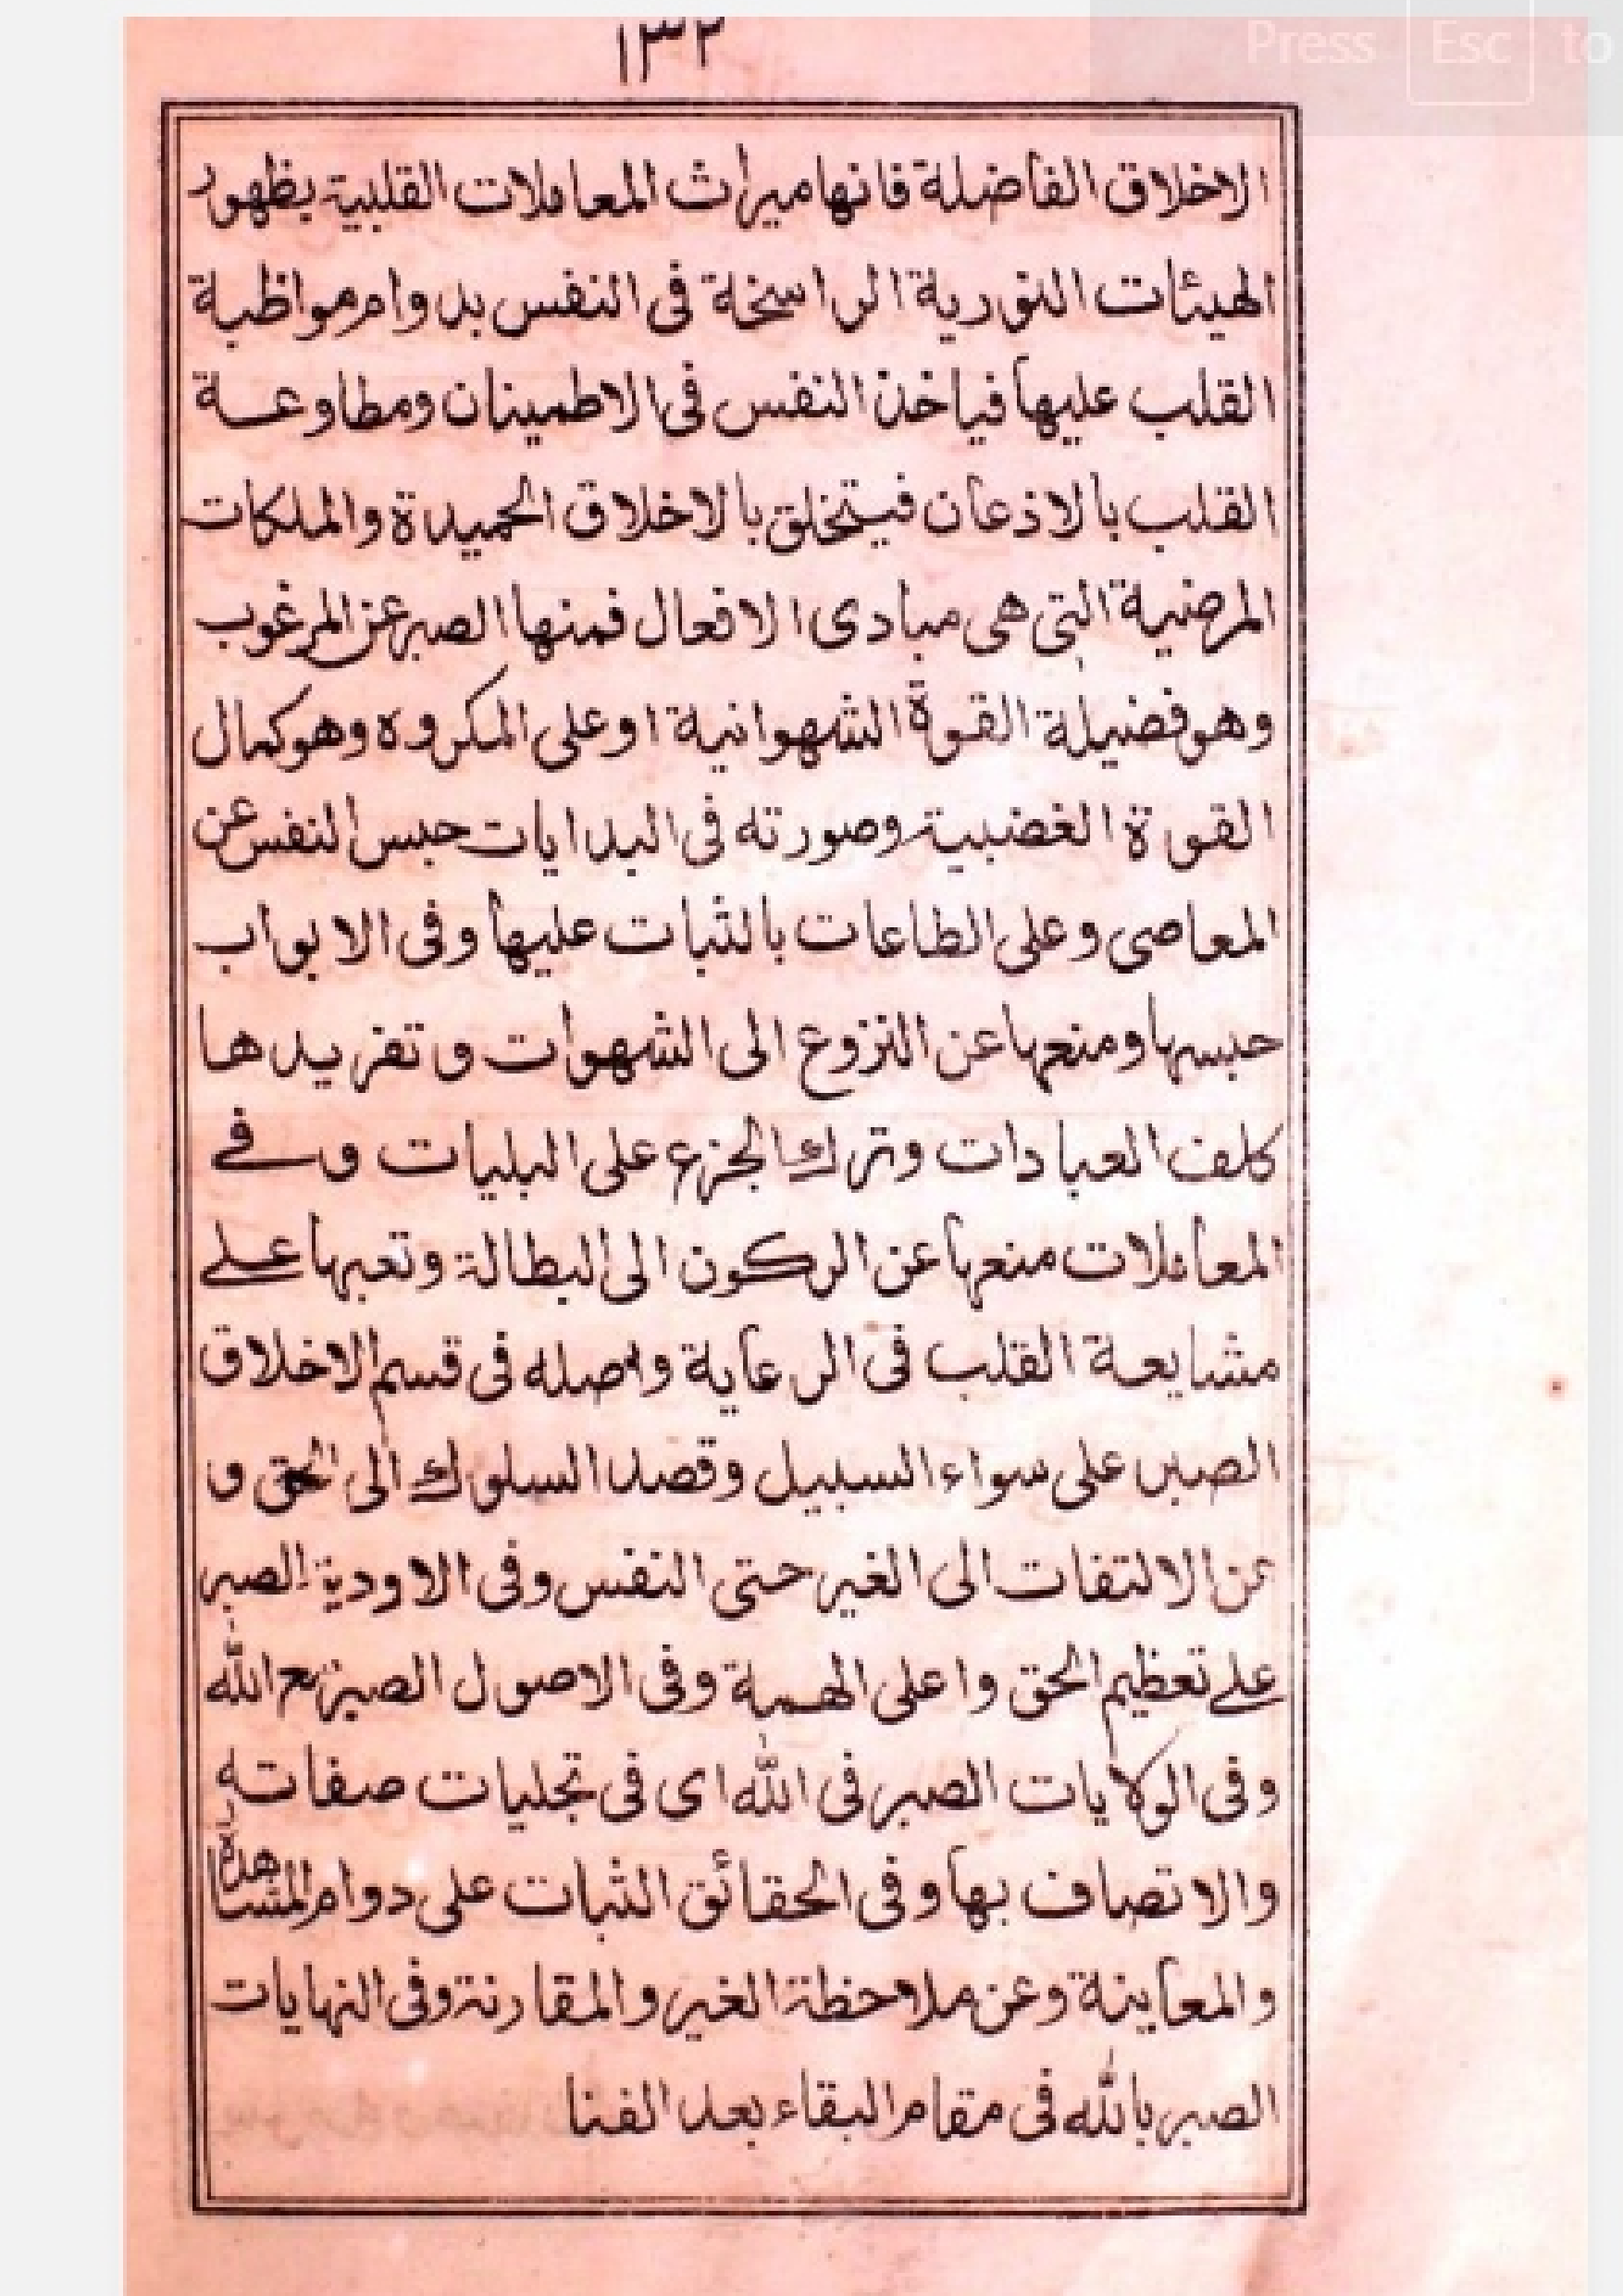 Press Esc to
١٣٢
الاخلاق الفاضلة فانها ميراث المعاملات القلبية بظهور
الهيئات النورية الراسخة فى النفس بدوام مواظبة
القلب عليها فياخذ النفس فى الاطمينان ومطاوعة
القلب بالاذعان فيتخلق بالاخلاق الحميدة والملكات
المرضية التى هى مبادى الافعال فمنها الصبر عن المرغوب
وهو فضيلة القوة الشهوانية او على المكروه وهو كمال
القوة الغضبية وصورته فى البدايات حبس النفس عن
المعاصى وعلى الطاعات بالثبات عليها وفى الابواب
حبسها ومنعها عن النزوع الى الشهوات و تفريدها
كلف العبادات وترك الجزع على البليات وفے
المعاملات منعها عن الركون الى البطالة وتعبها علے
مشايعة القلب فى الرعاية واصله فى قسم الاخلاق
الصبر على سواء السبيل وقصد السلوك الى الحق و
عن الالتفات الى الغير حتى النفس وفى الاودية الصبر
علے تعظيم الحق واعلى الهمة وفى الاصول الصبر مع الله
وفى الولايات الصبر فى الله اى فى تجليات صفاته
والاتصاف بها وفى الحقائق الثبات على دوام المشاهدة
والمعاينة وعن ملاحظة الغير والمقارنة وفى النهايات
الصبر بالله فى مقام البقاء بعد الفنا